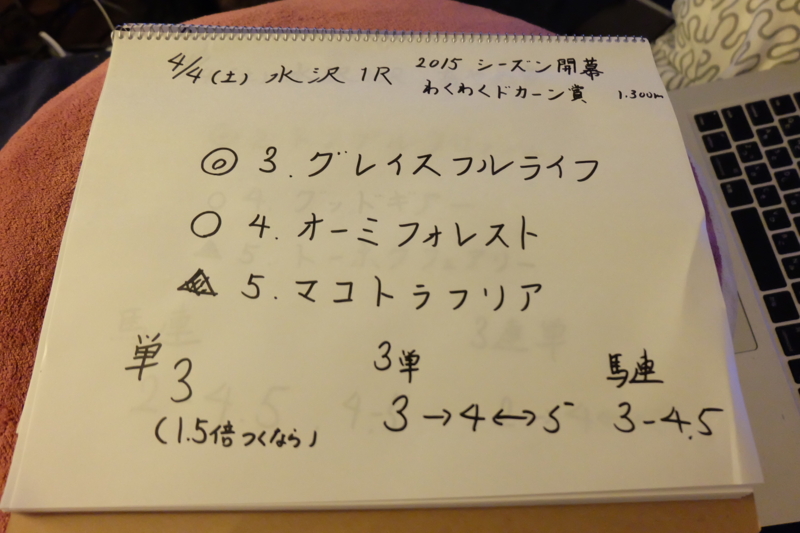 4/4(土) 水沢 1R 2015 シーズン開幕
わくわくドカーン賞 1.300m
◎ 3. グレイスフルライフ
○ 4. オーミフォレスト
▲ 5. マコトラフリア
単 3
(1.5倍つくなら)
3単
3→4↔5
馬連
3-4.5